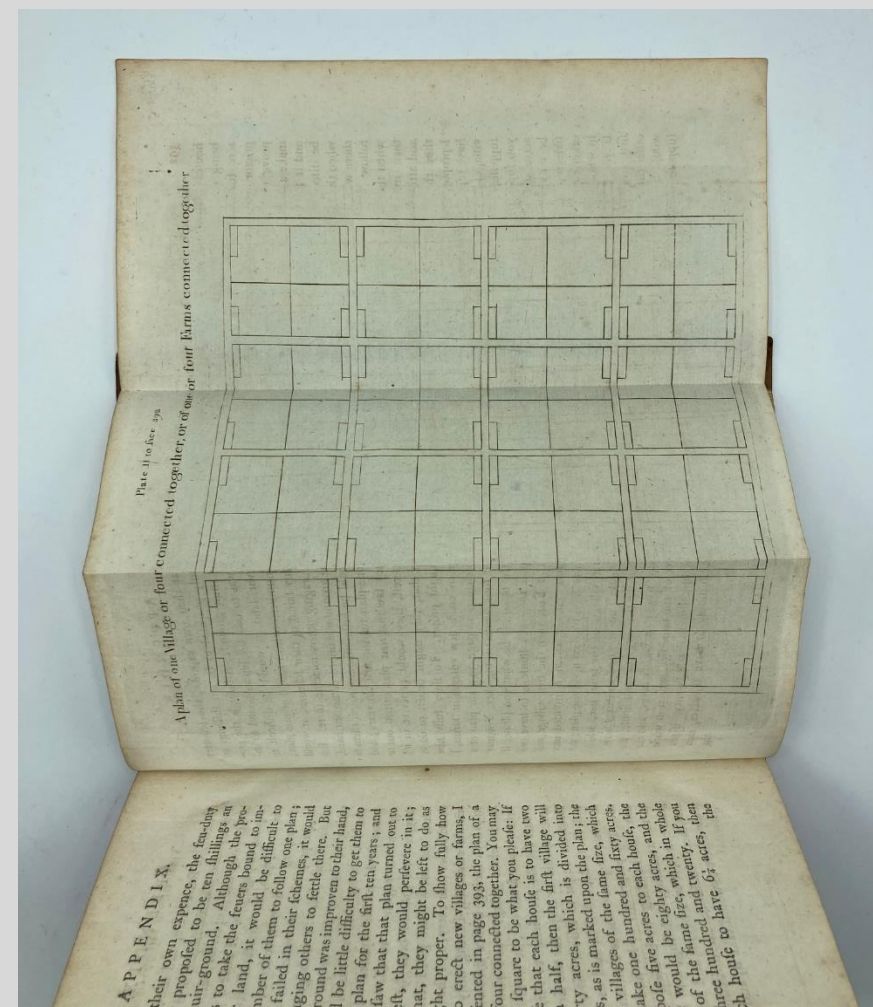 Plate II to face 392
A plan of one Village or four connected together, or of one or four Farms connected together
APPENDIX.
their own expence, the feu-duty
propoſed to be ten ſhillings an
uir-ground. Although the pro-
to take the feuers bound to im-
land, it would be difficult to
mber of them to follow one plan;
failed in their ſchemes, it would
ging others to ſettle there. But
round was improven to their hand,
be little difficulty to get them to
plan for the firſt ten years; and
ſaw that that plan turned out to
eſt, they would perſevere in it;
hat, they might be left to do as
ght proper. To ſhow fully how
o erect new villages or farms, I
ented in page 393, the plan of a
four connected together. You may
ſquare to be what you pleaſe: If
e that each houſe is to have two
half, then the firſt village will
ty acres, which is divided into
s, as is marked upon the plan; the
villages of the ſame ſize, which
ake one hundred and ſixty acres,
poſe five acres to each houſe, the
would be eighty acres, and the
of the ſame ſize, which in whole
hree hundred and twenty. If you
ch houſe to have 6¼ acres, then the